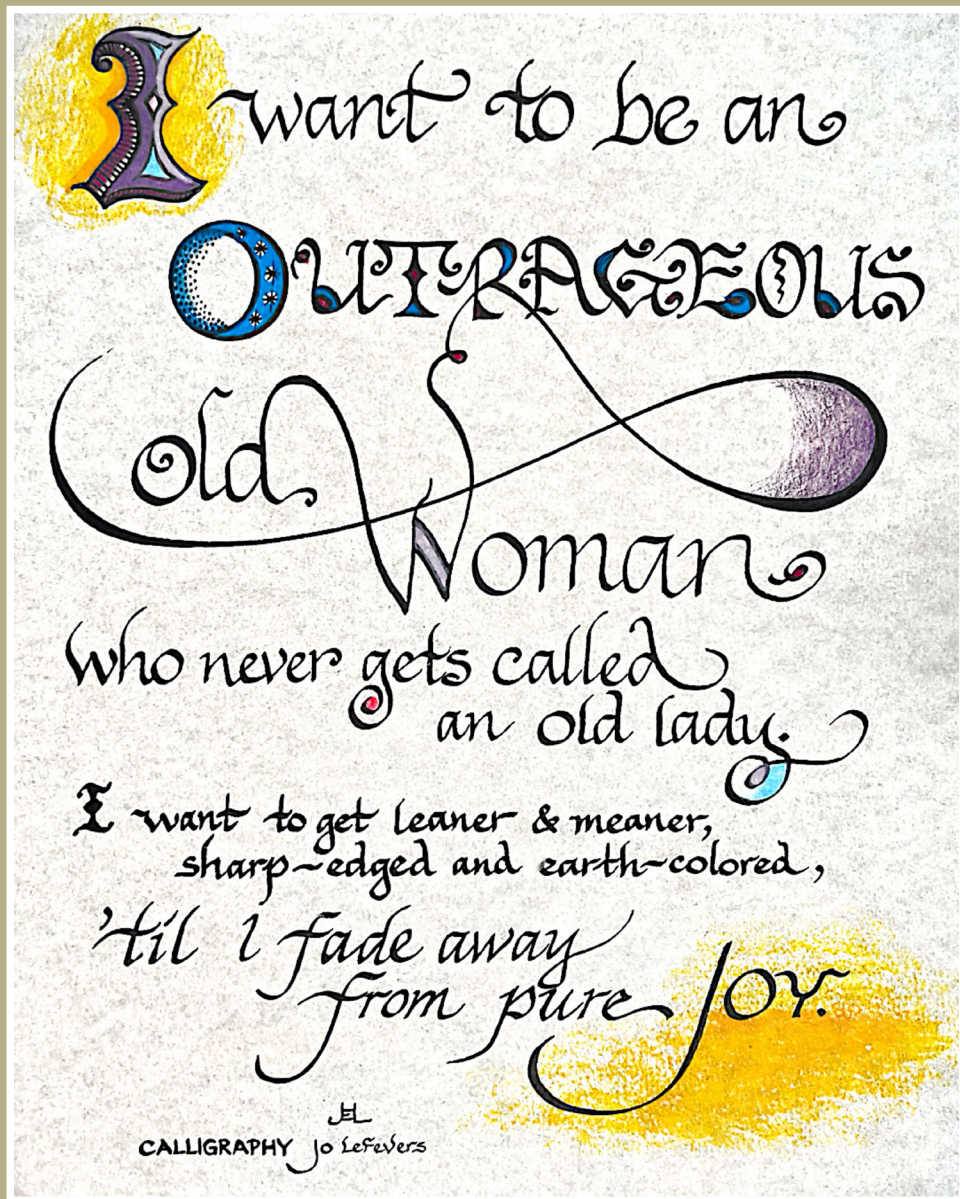 I want to be an
OUTRAGEOUS
old
Woman
who never gets called
an old lady.
I want to get leaner & meaner,
sharp-edged and earth-colored,
'til i fade away
from pure JOY.
JEL
CALLIGRAPHY Jo LeFevers